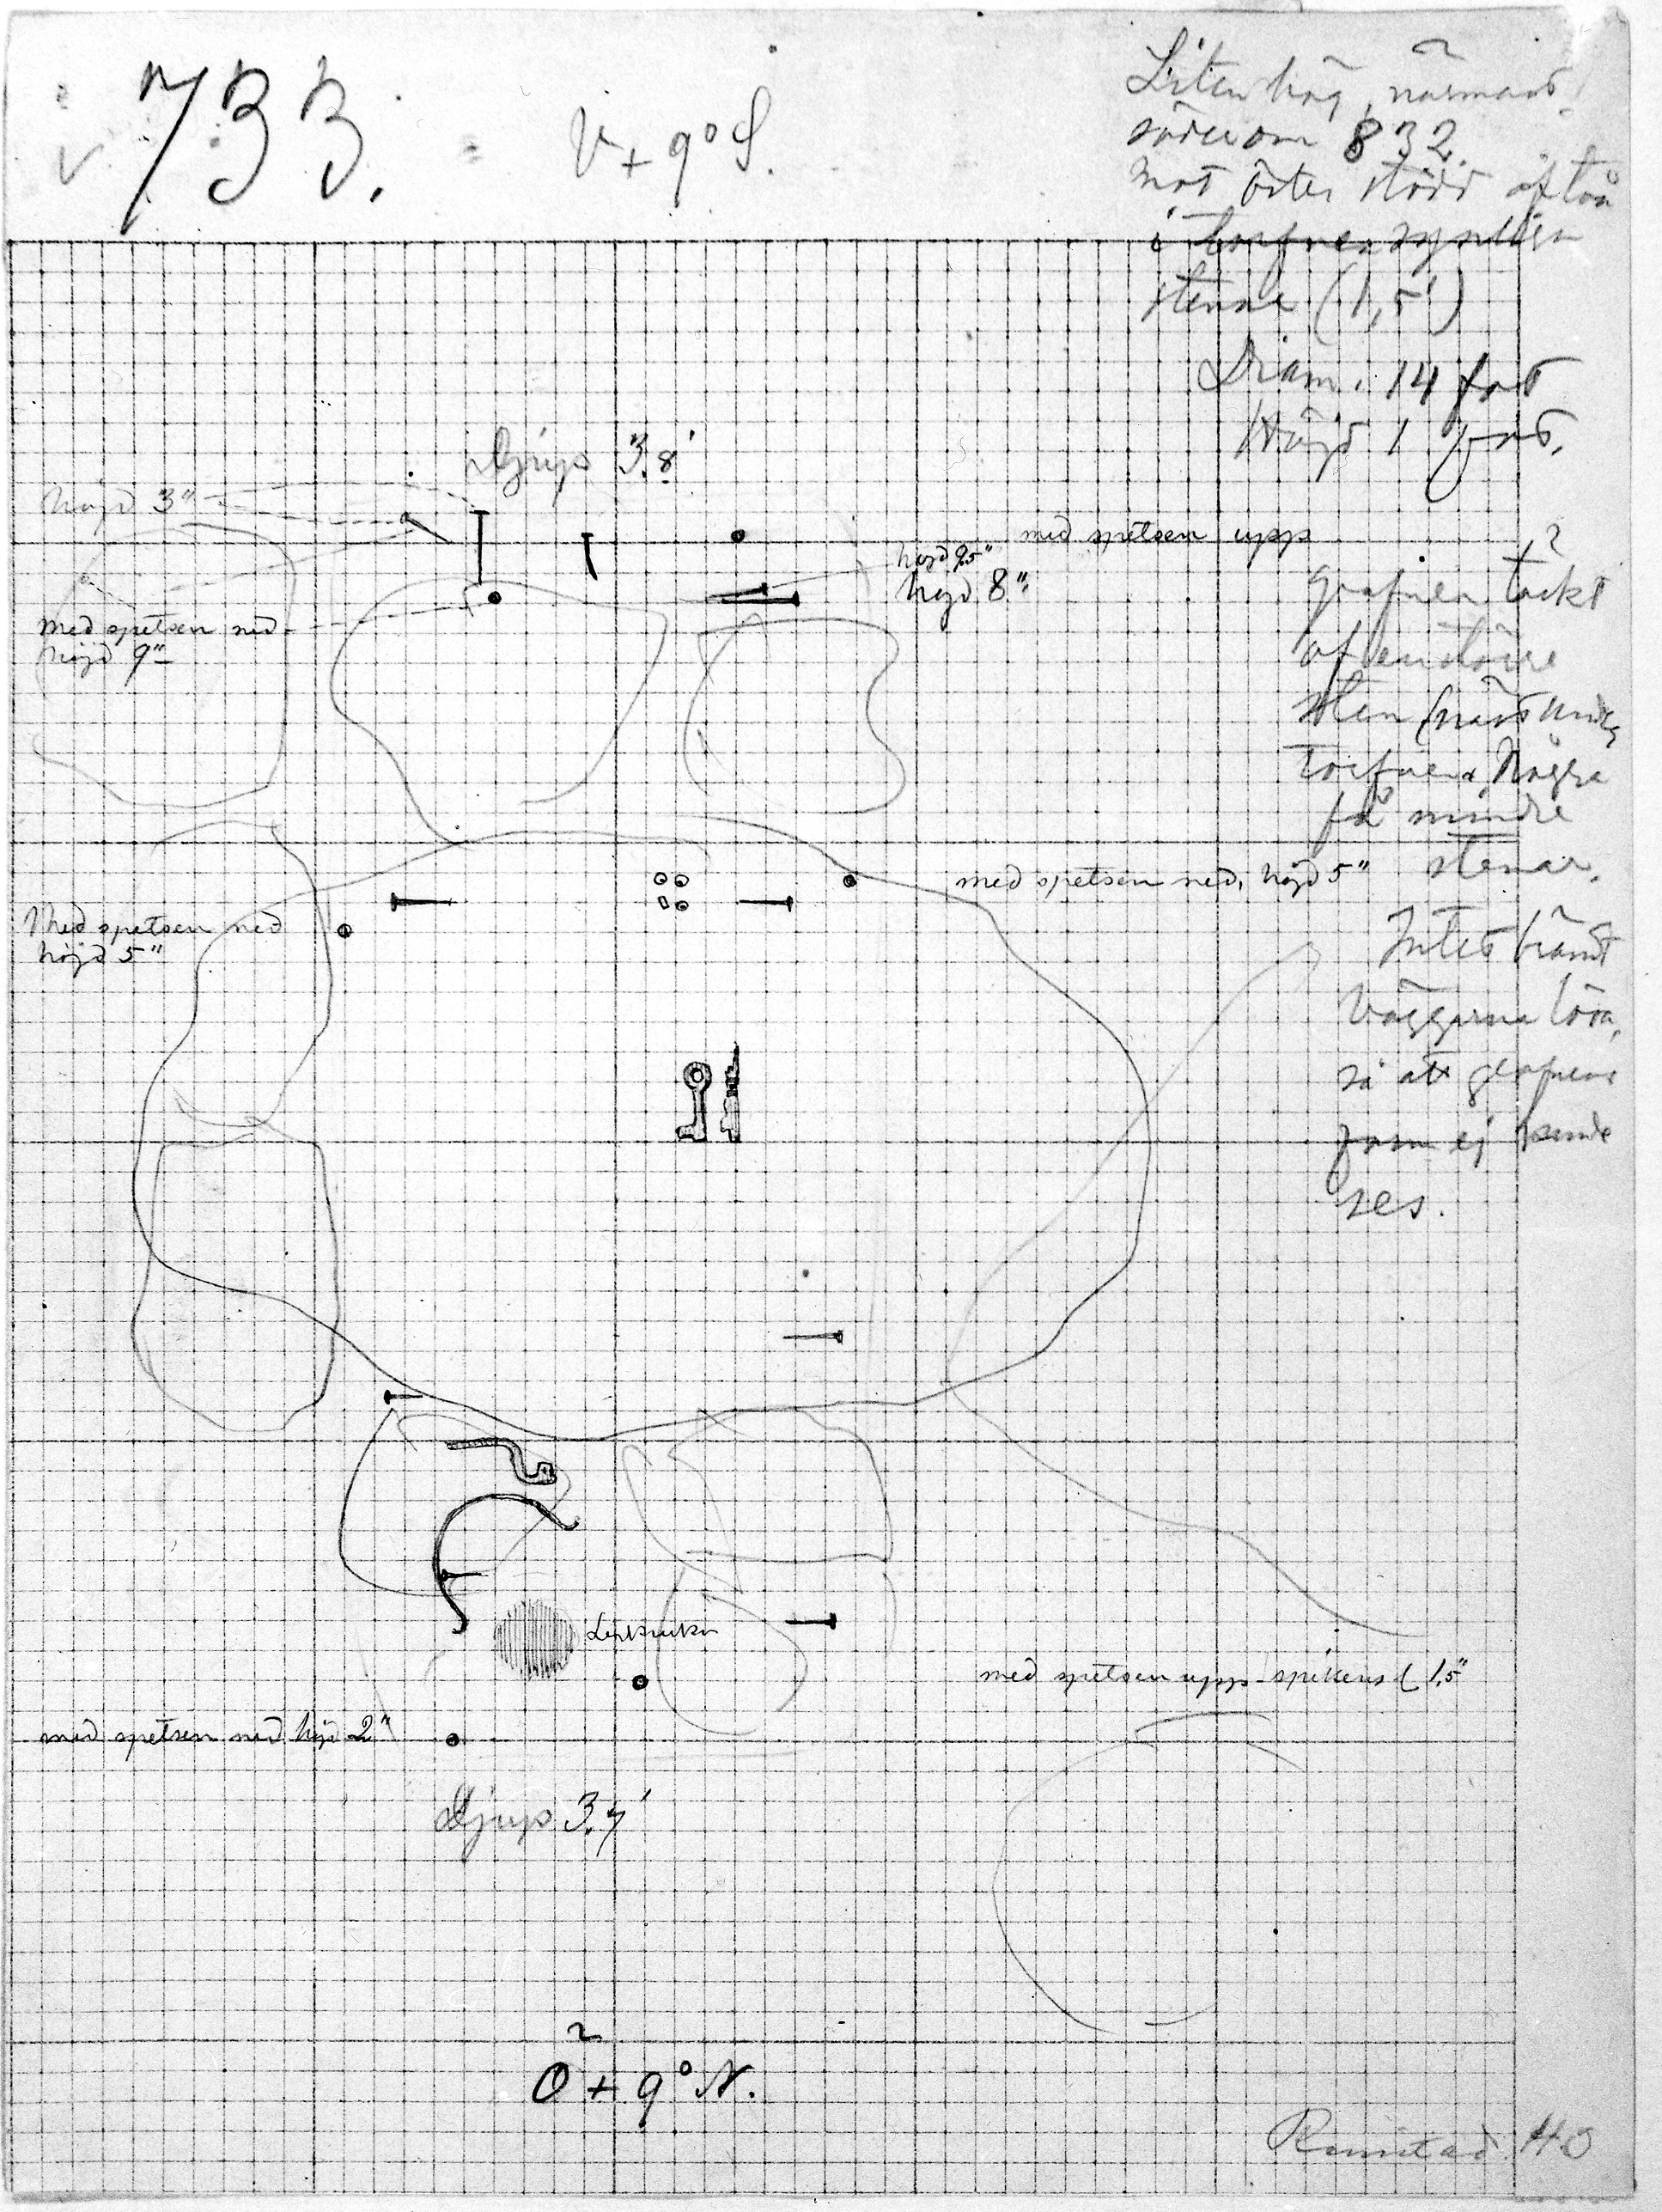 733.
V + 9° S.
Liten hög, närmast
söder om 832.
Mot öster stödd af två
i torfven synliga
stenar (1,5')
Diam. 14 fot
Höjd 1 fot.
Djup 3.8'
höjd 3"
med spetsen upp
höjd 9.5"
höjd 8"
med spetsen ned
höjd 9"
Grafven täckt
af en större
sten (näst under
torfven. Några
få mindre
stenar.
med spetsen ned, höjd 5"
Med spetsen ned
höjd 5"
Intet bränt
Väggarna lösa,
så att grafvens
form ej kunde
ses.
Lerkruka
med spetsen upp spikens l 1,5"
med spetsen ned höjd 2"
Djup 3.7'
Ö + 9° N.
40